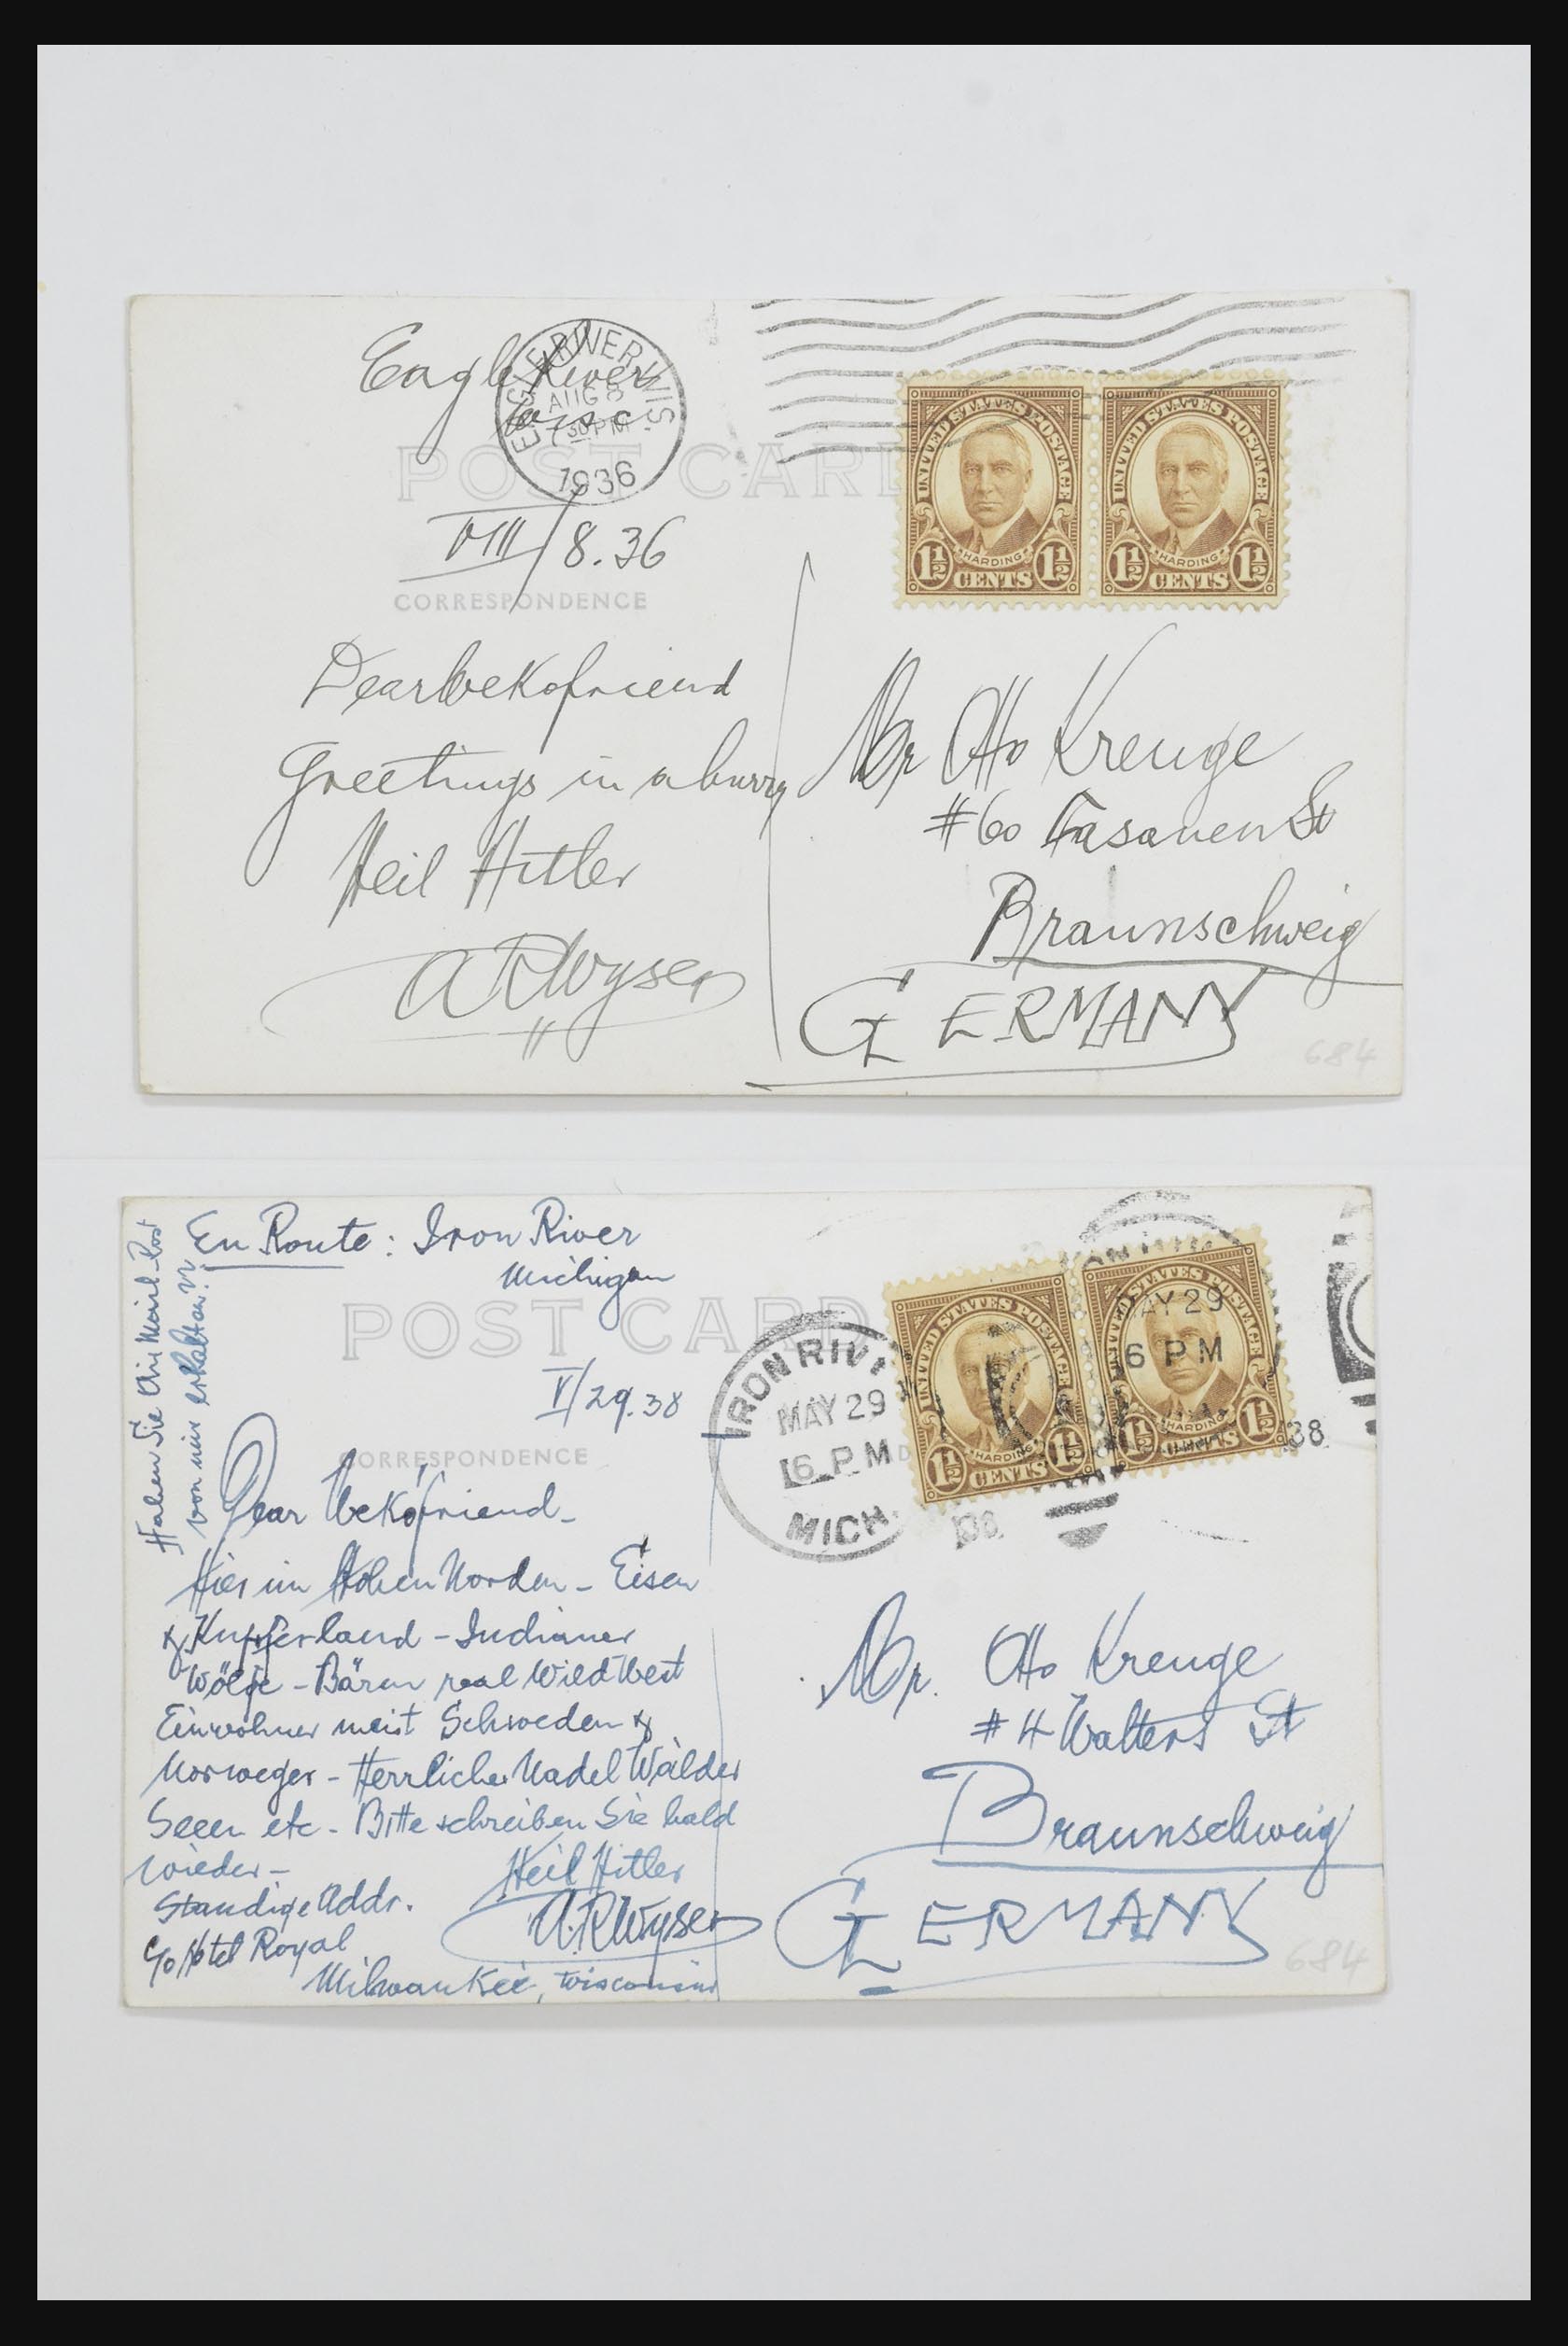 Eagle River
EAGLE RIVER, WIS.
AUG 8
7 30 PM
1936
POST CARD
VIII/8.36
CORRESPONDENCE
UNITED STATES POSTAGE
HARDING
1½ CENTS 1½
UNITED STATES POSTAGE
HARDING
1½ CENTS 1½
Dear Wekofriend
Greetings in a hurry
Heil Hitler
A R Wyser
Mr Otto Krenge
#60 Fasanen St
Braunschweig
GERMANY
684
Haben Sie Air Mail-Post
von mir erhalten??
En Route: Iron River
Michigan
POST CARD
V/29.38
CORRESPONDENCE
Dear Wekofriend-
Hier im Hohen Norden - Eisen
& Kupferland - Indianer
Wölfe - Bären real Wild West
Einwohner meist Schweden &
Norweger - Herrliche Nadel Wälder
Seeen etc - Bitte schreiben Sie bald
wieder -
Heil Hitler
A.R Wyser
Standige Addr.
c/o Hotel Royal
Milwaukee, Wisconsin
IRON RIV
MAY 29
6 PM
MICH.
38
UNITED STATES POSTAGE
HARDING
1½ CENTS 1½
UNITED STATES POSTAGE
MAY 29
6 PM
HARDING
1½ CENTS 1½
38
Mr. Otto Krenge
#4 Walters St
Braunschweig
GERMANY
684